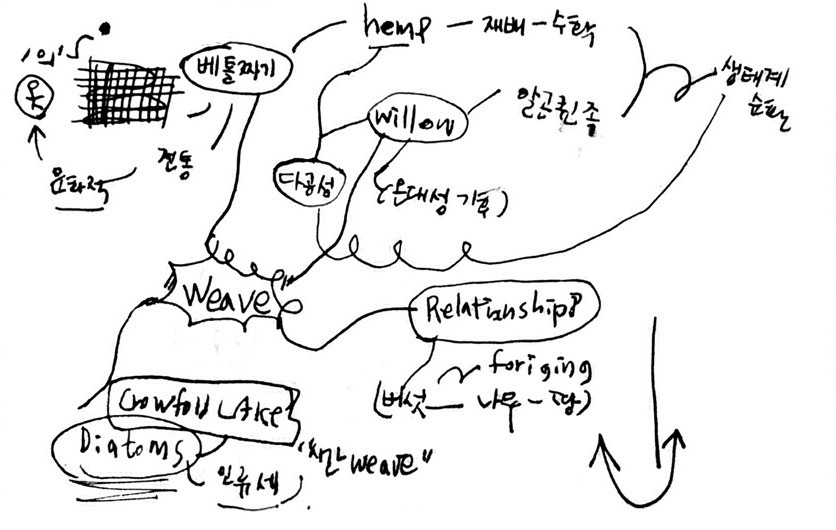 hemp — 재배 — 수확
'의'
베틀짜기
생태계
순환
옷
willow
알곤퀸 족
전통
다공성
문화적
(온대성 기후)
Weave
Relationship?
foriging
(버섯 — 나무 — 땅)
Crowfoot LAke
Diatoms
"시간 weave"
인류세